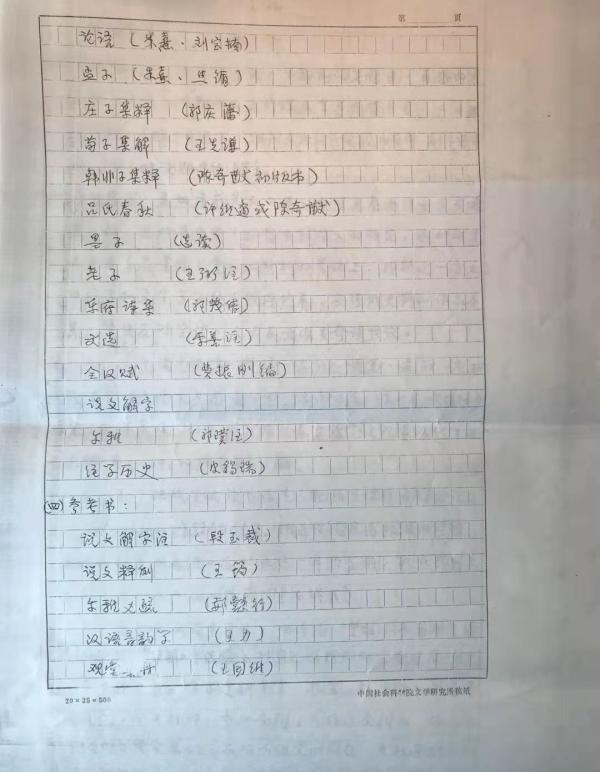 第 頁
论语 (朱熹、刘宝楠)
孟子 (朱熹、焦循)
庄子集释 (郭庆藩)
荀子集解 (王先谦)
韩非子集释 (陈奇猷初版书)
吕氏春秋 (许维遹或陈奇猷)
墨子 (选读)
老子 (王弼注)
乐府诗集 (郭茂倩)
文选 (李善注)
全汉赋 (费振刚编)
说文解字
尔雅 (郭璞注)
经学历史 (皮锡瑞)
(四)参考书:
说文解字注 (段玉裁)
说文释例 (王筠)
尔雅义疏 (郝懿行)
汉语音韵学 (王力)
观堂 林 (王国维)
20×25=500 中国社会科学院文学研究所稿纸